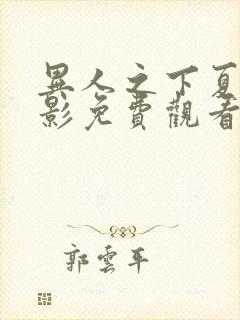 異人之下夏
影免費觀看
郭雲平